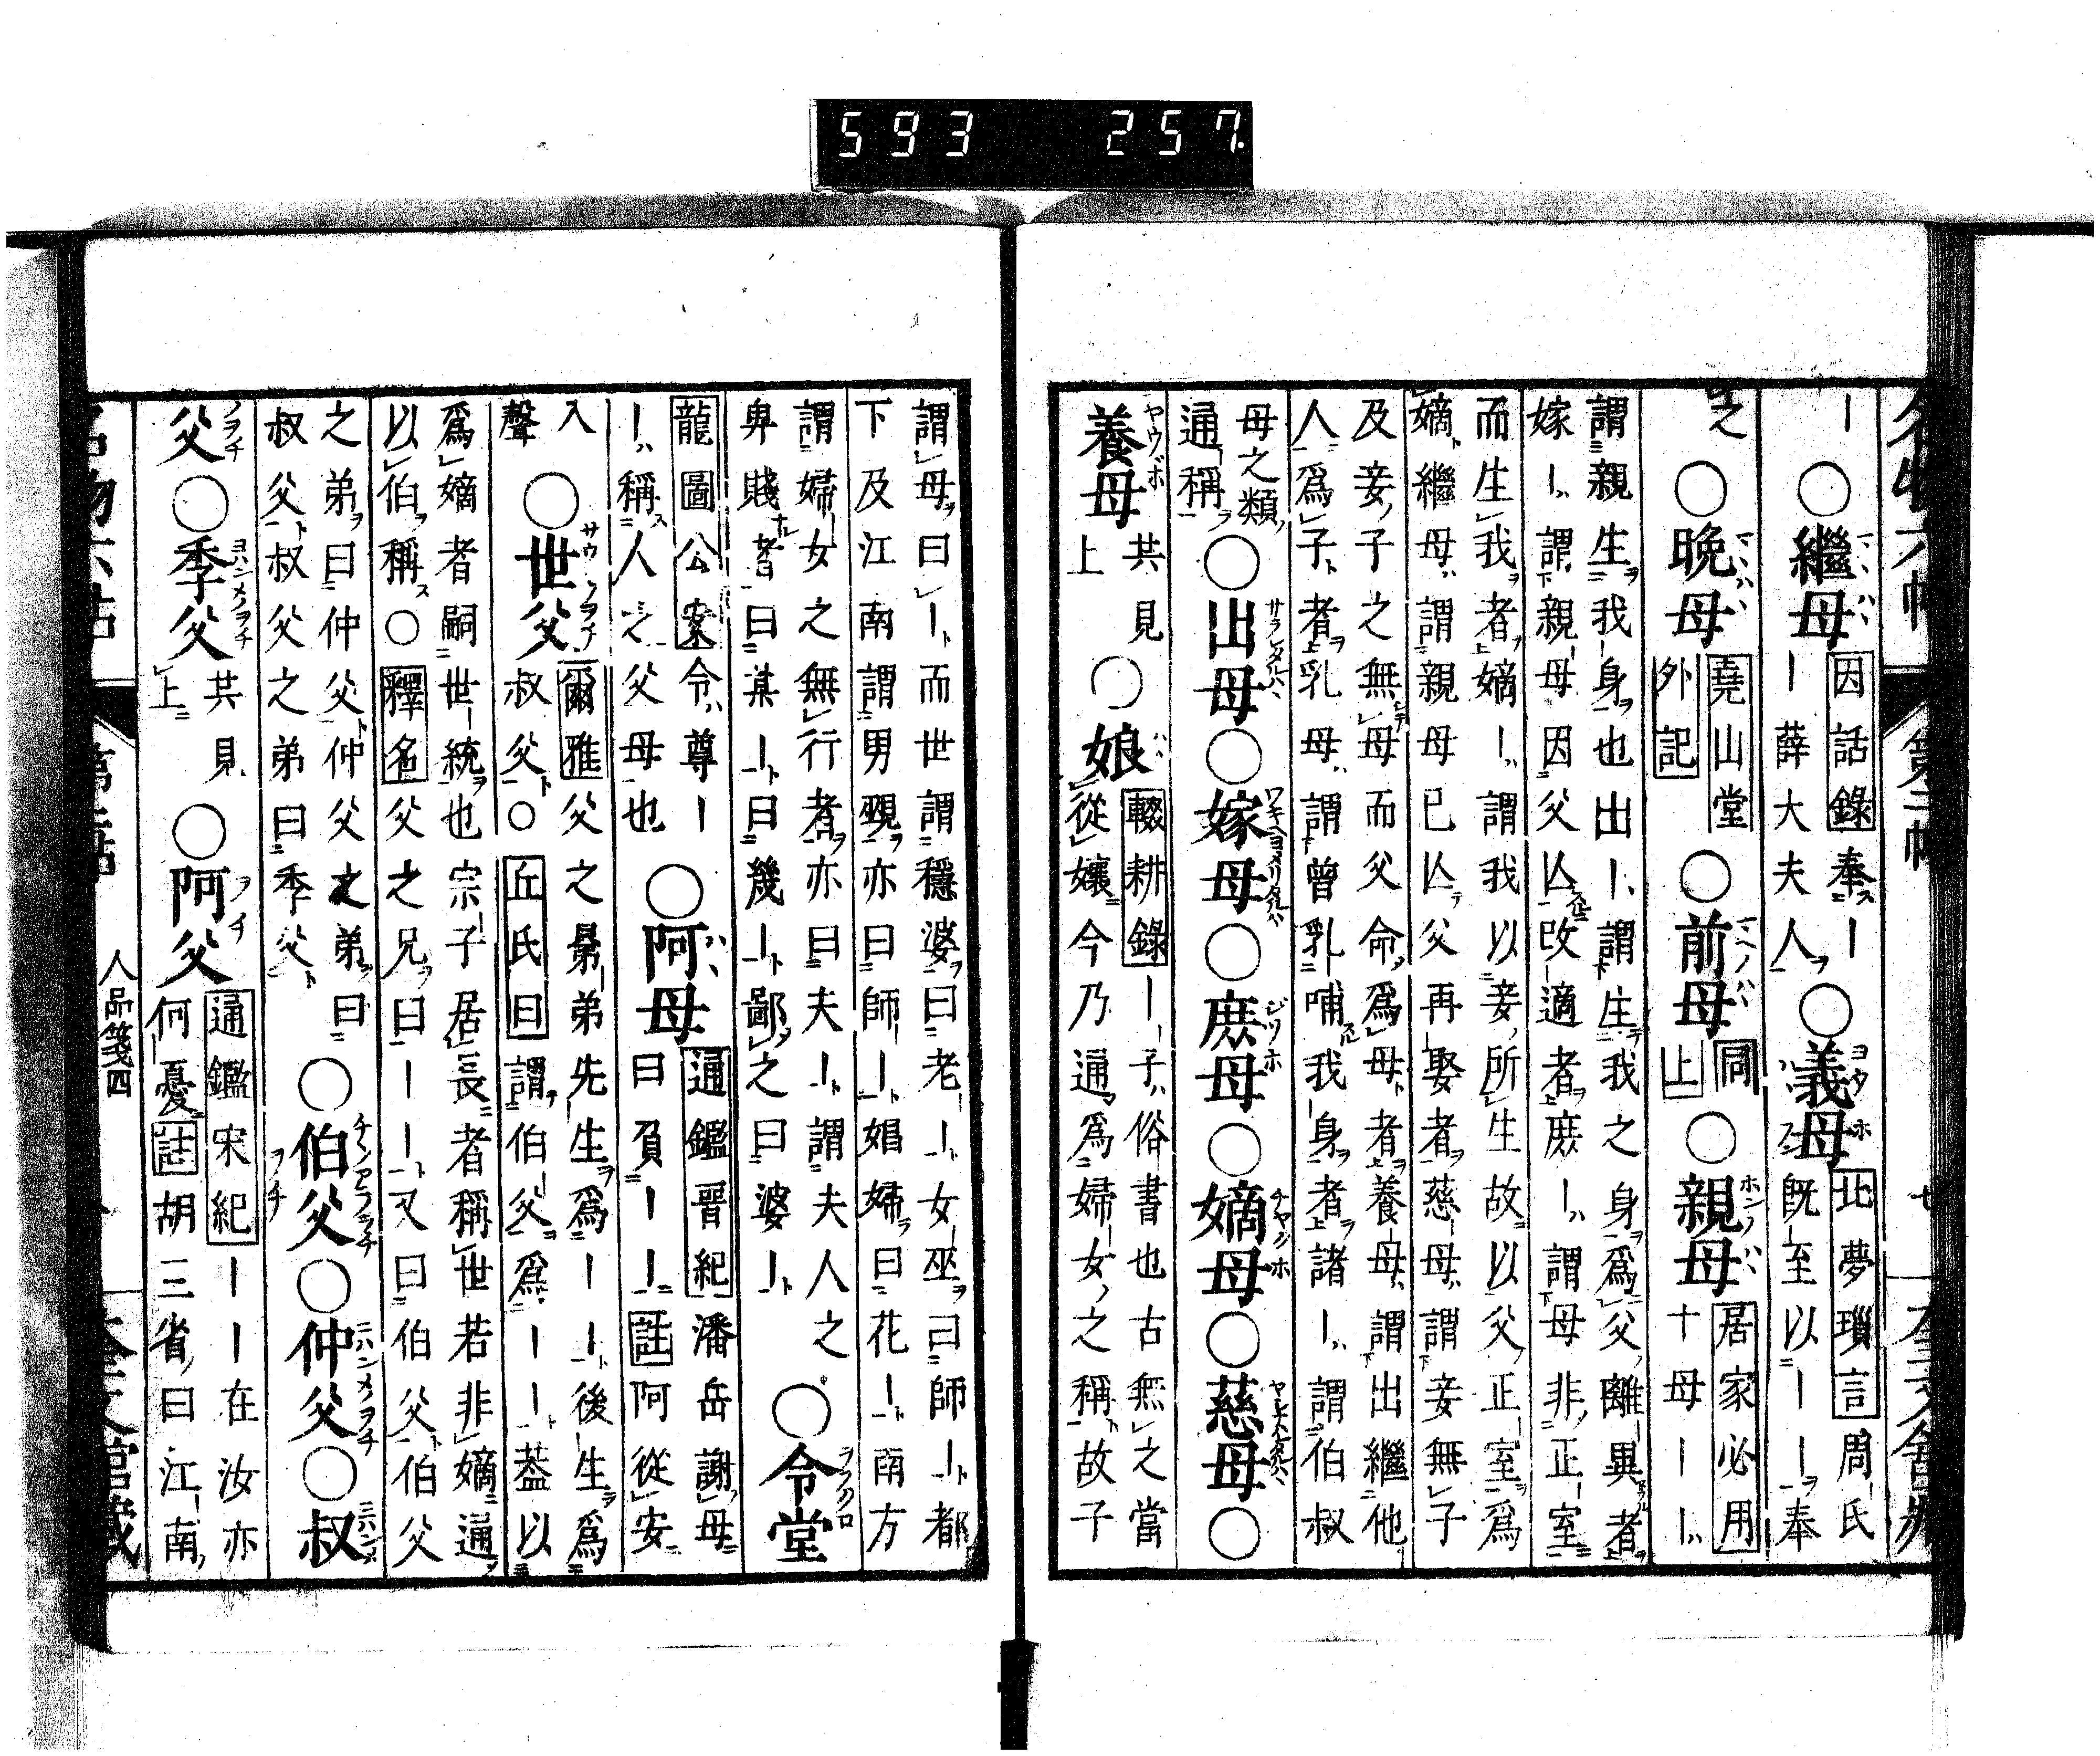 593 257
｜○繼母因話錄奉｜
｜薛大夫人○義母北夢瑣言周氏
既至以｜｜奉
之○晩母堯山堂
外記○前母同
上○親母居家必用
十母｜｜
謂親生我身也出｜謂生我之身爲父離異者
嫁｜謂親母因父亾改適者庶｜謂母非正室
而生我者嫡｜謂我以妾所生故以父正室爲
嫡繼母謂親母已亾父再娶者慈母謂妾無子
及妾子之無母而父命爲母者養母謂出繼他
人爲子者乳母謂曾乳哺我身者諸｜謂伯叔
母之類
通稱○出母○嫁母○庶母○嫡母○慈母○
養母共見
上○娘輟耕錄｜子俗書也古無之當
從孃今乃通爲婦女之稱故子
謂母曰｜而世謂穩婆曰老｜女巫曰師｜都
下及江南謂男覡亦曰師｜娼婦曰花｜南方
謂婦女之無行者亦曰夫｜謂夫人之
卑賤者曰某｜曰幾｜鄙之曰婆｜○令堂
龍圖公案令尊｜
｜稱人之父母也○阿母通鑑晋紀潘岳謝母
曰負｜｜註阿從安
入
聲○世父爾雅父之晜弟先生爲｜｜後生爲
叔父○丘氏曰謂伯父爲｜｜葢以
爲嫡者嗣世統也宗子居長者稱世若非嫡通
以伯稱○釋名父之兄曰｜｜又曰伯父伯父
之弟曰仲父仲父之弟曰
叔父叔父之弟曰季父○伯父○仲父○叔
父○季父共見
上○阿父通鑑宋紀｜｜在汝亦
何憂註胡三省曰江南
名物六帖 第二帖 人品箋四 奎文館藏